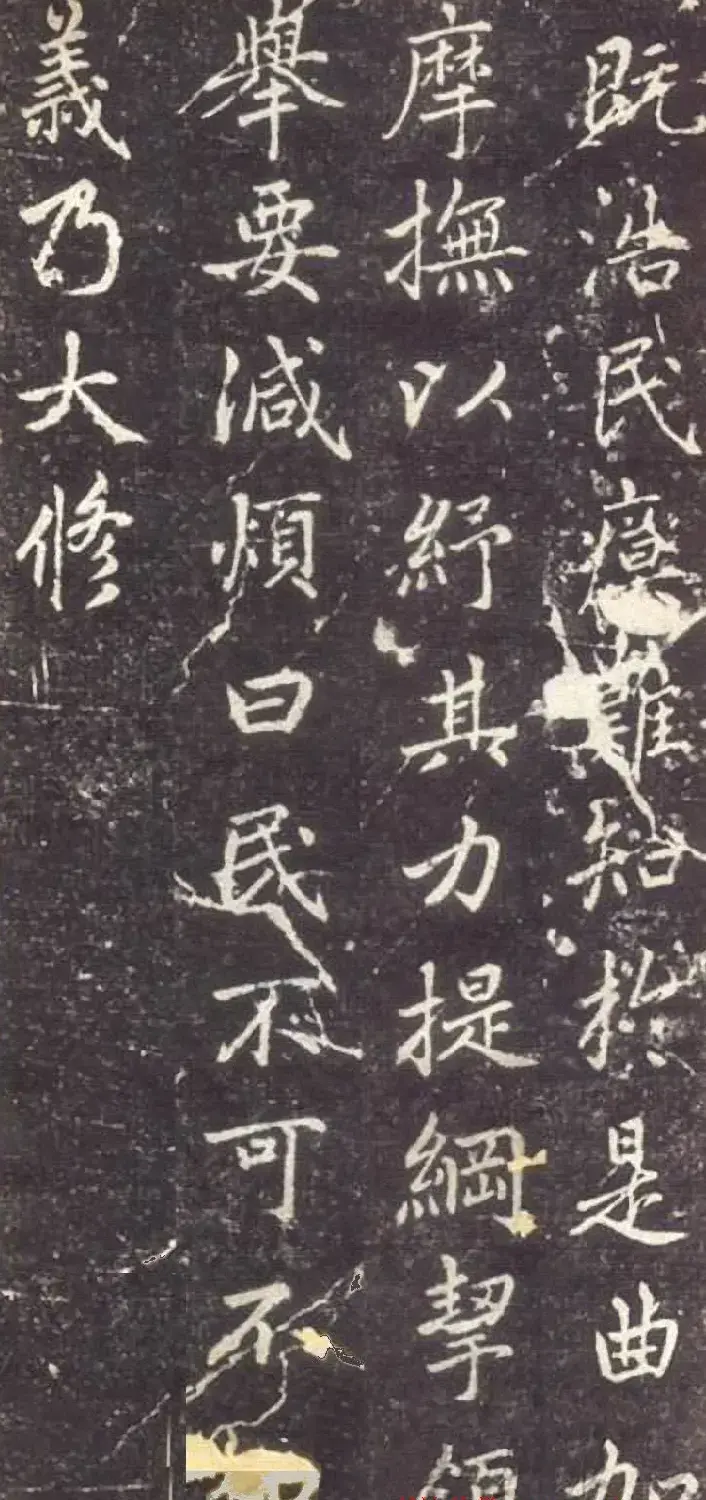 既浩民瘼難知於是曲加
摩撫以紓其力提綱挈領
舉要減煩曰民不可不
義乃大修